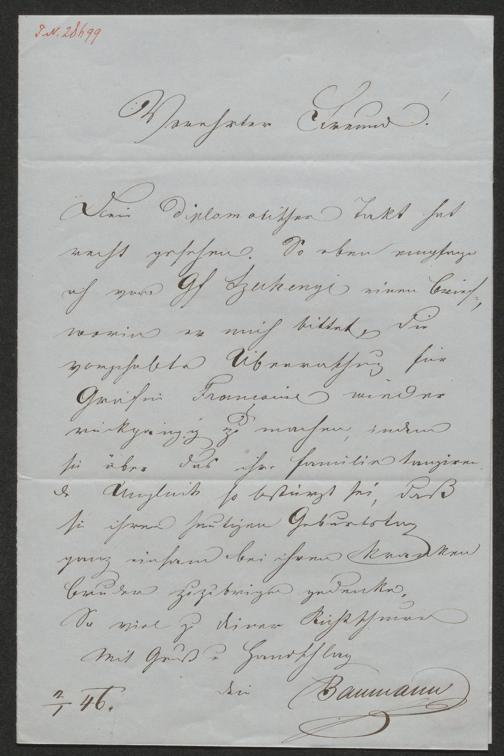 I.N. 28499
Verehrter Freund!
Dein diplomatischer Takt hat
recht gesehen. So eben empfange
ich vom Gf Szechenyi einen Brief,
worin er mich bittet, die
vorgehabte Überraschung für
Gräfin Francoise wieder
rückgängig zu machen, indem
sie über das ihre Familie tangiren
de Unglück so bestürzt sei, daß
sie ihren heutigen Geburtstag
ganz einsam bei ihrem kranken
Bruder zuzubringen gedenke.
So viel zu deiner Richtschnur
Mit Gruß u Handschlag
dein Baumann
2/1 46.